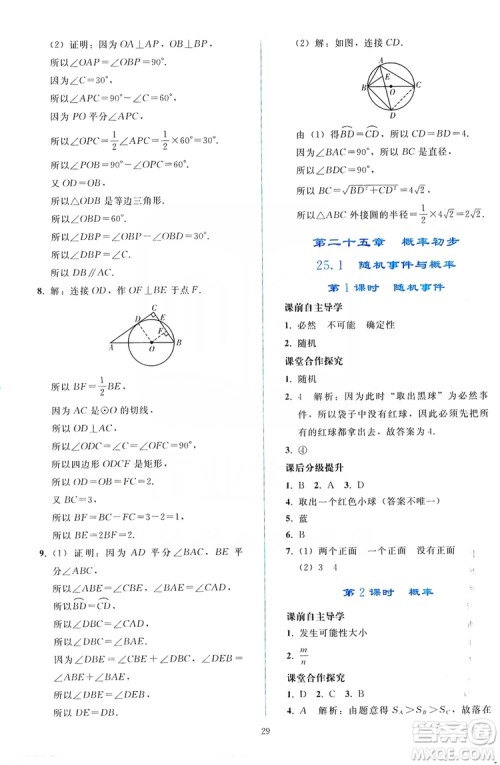 (2) 证明：因为 OA⊥AP，OB⊥BP，
所以∠OAP＝∠OBP＝90°.
因为∠C＝30°，
所以∠APC＝90°－∠C＝60°.
因为 PO 平分∠APC，
所以∠OPC＝1/2∠APC＝1/2×60°＝30°，
所以∠POB＝90°－∠OPC＝60°.
又 OD＝OB，
所以△ODB 是等边三角形，
所以∠OBD＝60°，
所以∠DBP＝∠OBP－∠OBD＝30°，
所以∠DBP＝∠C，
所以 DB∥AC.
8. 解：连接 OD，作 OF⊥BE 于点 F.
C
D
E
F
A
O
B
所以 BF＝1/2BE.
因为 AC 是⊙O 的切线，
所以 OD⊥AC，
所以∠ODC＝∠C＝∠OFC＝90°，
所以四边形 ODCF 是矩形.
因为 OD＝OB＝FC＝2，BC＝3，
所以 BF＝BC－FC＝3－2＝1，
所以 BE＝2BF＝2.
9. (1) 证明：因为 AD 平分∠BAC，BE 平分∠ABC，
所以∠ABE＝∠CBE，∠BAE＝∠CAD，
所以BD＝CD，
所以∠DBC＝∠CAD，
所以∠DBC＝∠BAE.
因为∠DBE＝∠CBE＋∠DBC，
∠DEB＝∠ABE＋∠BAE，
所以∠DBE＝∠DEB，
所以 DE＝DB.
(2) 解：如图，连接 CD.
A
E
B
O
C
D
由 (1) 得BD＝CD，所以 CD＝BD＝4.
因为∠BAC＝90°，所以 BC 是直径，
所以∠BDC＝90°，
所以 BC＝√(BD²＋CD²)＝4√2，
所以△ABC 外接圆的半径＝1/2×4√2＝2√2.
第二十五章　概率初步
25.1　随机事件与概率
第 1 课时　随机事件
课前自主导学
1. 必然　不可能　确定性
2. 随机
课堂合作探究
1. 随机
2. 4　解析：此时“取出黑球”为必然事件，所以袋子中没有红球，所以所有的红球为4个，所以 m 的值为 4.
3. ④
课后分级提升
1. B　2. A　3. D
4. 取出一个红色小球（答案不唯一）
5. 蓝
6. B
7. (1) 两个正面　一个正面　没有正面
(2) 3　4
第 2 课时　概率
课前自主导学
1. 发生可能性大小
2. m/n
课堂合作探究
1. A　解析：由题意得 S_A＞S_B＞S_C，故落在
29
答案圈